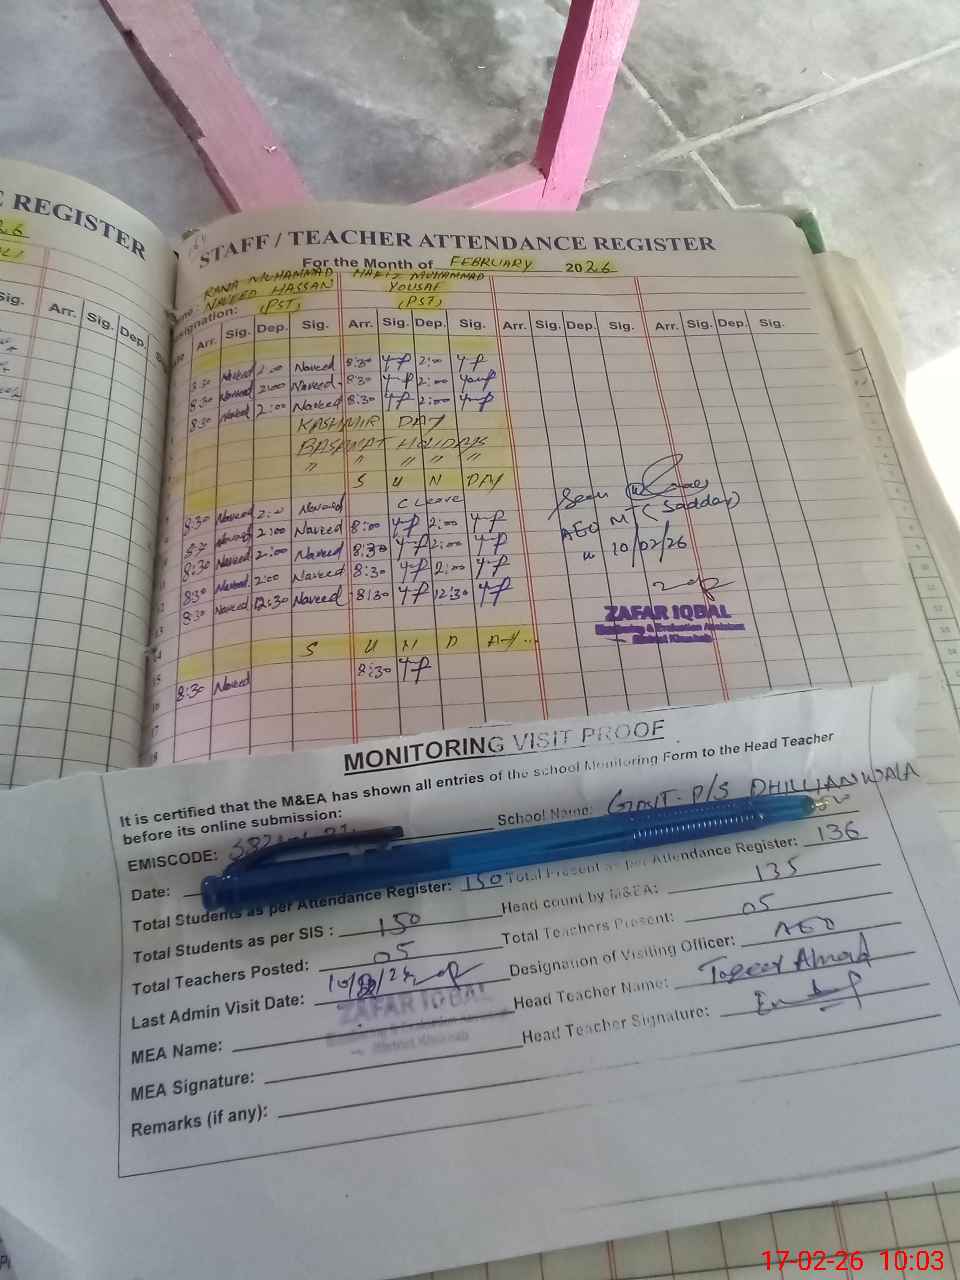 E REGISTER
Sig. Arr. Sig. Dep.
STAFF / TEACHER ATTENDANCE REGISTER
For the Month of FEBRUARY 2026
RANA MUHAMMAD HAFIZ MUHAMMAD
NAVEED HASSAN YOUSAF
(PST) (PST)
Arr. Sig. Dep. Sig. Arr. Sig. Dep. Sig. Arr. Sig. Dep. Sig. Arr. Sig. Dep. Sig.
8:30 Naveed 2:00 Naveed 8:30 2:00
8:30 Naveed 2:00 Naveed 8:30 2:00
8:30 Naveed 2:00 Naveed 8:30 2:00
KASHMIR DAY
BASANAT HOLIDAYS
" " " " "
S U N DAY
8:30 Naveed 2:00 Naveed C Leave
Naveed 2:00 Naveed 8:00 2:00
8:30 Naveed 2:00 Naveed 8:30 2:00
8:30 Naveed 2:00 Naveed 8:30 2:00
8:30 Naveed 12:30 Naveed 8:30 12:30
S U N D AY...
8:30 Naveed 8:30
Seen
AEO M (Saddar)
10/02/26
ZAFAR IQBAL
Monitoring & Evaluation Assistant
District Khushab
MONITORING VISIT PROOF
It is certified that the M&EA has shown all entries of the school Monitoring Form to the Head Teacher
before its online submission:
EMISCODE: School Name: Govt. P/S DHILLIANWALA
Date:
Total Students as per Attendance Register: 150 Total Present as per Attendance Register: 136
Total Students as per SIS : 150 Head count by M&EA: 135
Total Teachers Posted: 05 Total Teachers Present: 05
Last Admin Visit Date: Designation of Visiting Officer: AEO
MEA Name: Head Teacher Name: Ahmad
ZAFAR IQBAL
Monitoring & Evaluation Assistant
District Khushab
MEA Signature: Head Teacher Signature:
Remarks (if any):
17-02-26 10:03